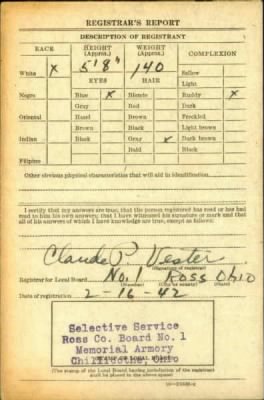 REGISTRAR'S REPORT
DESCRIPTION OF REGISTRANT
RACE HEIGHT (Approx.) WEIGHT (Approx.) COMPLEXION
White X 5'8" 140 Sallow
EYES HAIR Light
Negro Blue X Blonde Ruddy X
Gray Red Dark
Oriental Hazel Brown Freckled
Brown Black Light brown
Indian Black Gray Dark brown
Bald Black
Filipino
Other obvious physical characteristics that will aid in identification
I certify that my answers are true; that the person registered has read or has had
read to him his own answers; that I have witnessed his signature or mark and that
all of his answers of which I have knowledge are true, except as follows:
Claude P. Vester
(Signature of registrar)
Registrar for Local Board No. 1 Ross Ohio
(Number) (City or county) (State)
Date of registration 2-16-42
Selective Service
Ross Co. Board No. 1
Memorial Armory
Chillicothe, Ohio
STAMP OF LOCAL BOARD
(The stamp of the Local Board having jurisdiction of the registrant
shall be placed in the above space)